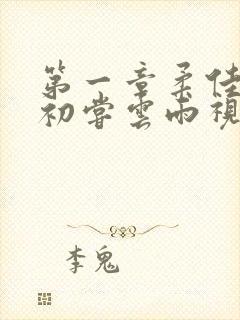 第一章柔佳
初尝云雨视
李鬼